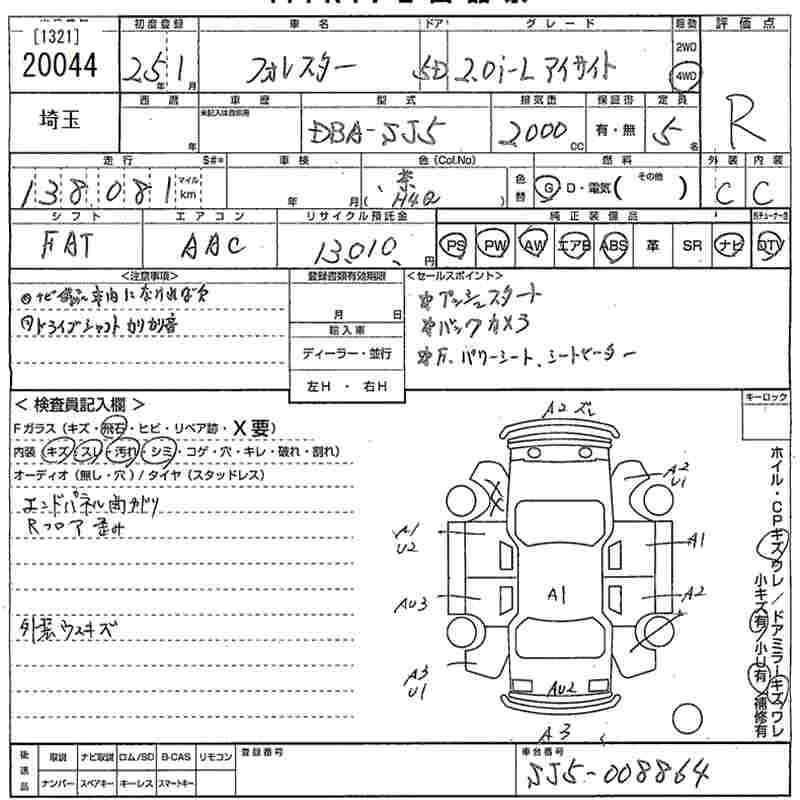 [1321]
20044
埼玉
初度登録 車名 ドア グレード 駆動 評価点
25年1月 フォレスター 5D 2.0i-L アイサイト 2WD 4WD R
西暦 車歴 型式 排気量 保証書 定員
年 未記入は自家用 DBA-SJ5 2000cc 有・無 5名
走行 S#* 車検 色(Col.No) 燃料 外装 内装
138081 マイル km 年 月 茶 H4Q 色替 G・D・電気( その他 ) C C
シフト エアコン リサイクル預託金 純正装備品
FAT AAC 13010円 PS PW AW エアB ABS 革 SR ナビ DTV
<注意事項> 登録書類有効期限 <セールスポイント>
月 日
輸入車
ディーラー・並行
左H・右H
ドライブシャフト カリカリ音
*プッシュスタート
*バックカメラ
*F、パワーシート、シートヒーター
<検査員記入欄>
Fガラス(キズ・飛石・ヒビ・リペア跡・X要)
内装(キズ・スレ・汚れ・シミ・コゲ・穴・キレ・破れ・割れ)
オーディオ(無し・穴)/タイヤ(スタッドレス)
エンドパネル曲カドリ
Rフロア歪み
外装ウスキズ
キーロック
A2 ズレ
A2
U1
A1
U2
A1
AU3
A1
A2
A3
U1
AU2
A3
ホイル・CPキズワレ/ドアミラーキズワレ
小キズ有/小U有/補修有
後送品 取説 ナビ取説 ロム/SD B-CAS リモコン 登録番号 車台番号
ナンバー スペアキー キーレス スマートキー SJ5-008864